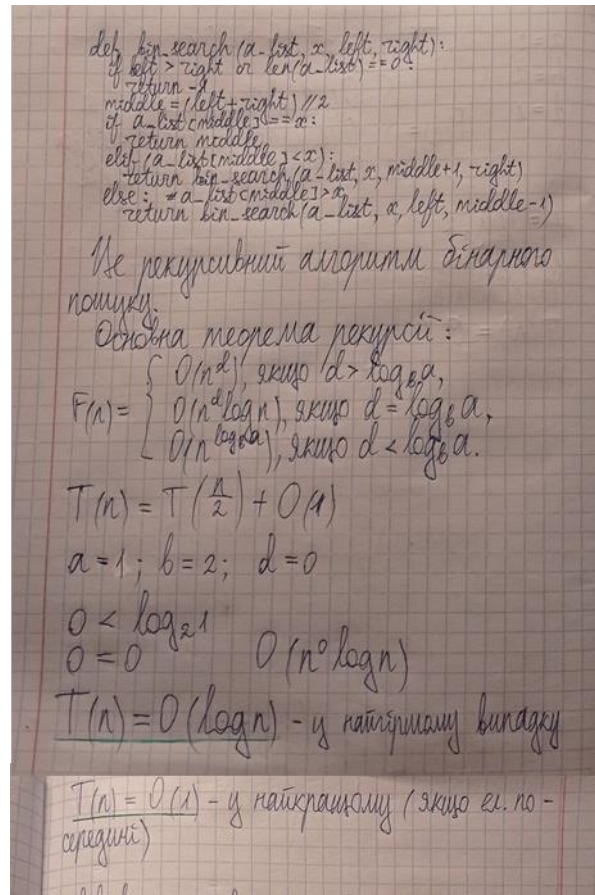 def bin_search(a_list, x, left, right):
if left > right or len(a_list) == 0:
return -1
middle = (left+right)//2
if a_list[middle] == x:
return middle
elif (a_list[middle] < x):
return bin_search(a_list, x, middle+1, right)
else: # a_list[middle] > x
return bin_search(a_list, x, left, middle-1)
Це рекурсивний алгоритм бінарного
пошуку.
Основна теорема рекурсії:
O(n^d), якщо d > log_b a,
F(n) = { O(n^d log n), якщо d = log_b a,
O(n^(log_b a)), якщо d < log_b a.
T(n) = T(n/2) + O(1)
a = 1; b = 2; d = 0
0 < log₂1
0 = 0 O(n⁰ log n)
T(n) = O(log n) - у найгіршому випадку
T(n) = O(1) - у найкращому (якщо ел. по-
середині)